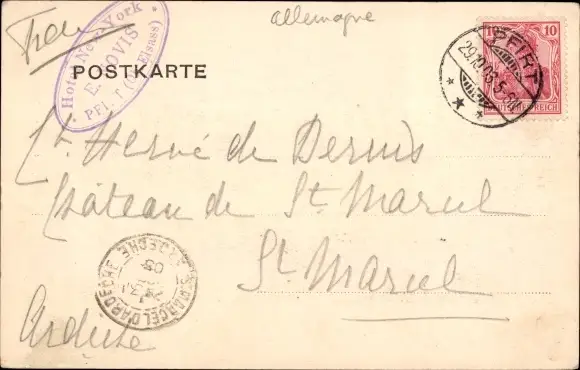 allemagne
Hotel New-York
E. NOVIS
PFIRT (Elsass)
POSTKARTE
PFIRT
29.10.03.5-6N
10 10
DEUTSCHES REICH
Hervé de Bernis
Château de St. Marcel
St. Marcel
ST MARCEL D'ARDECHE ARDECHE
31
03
Ardèche